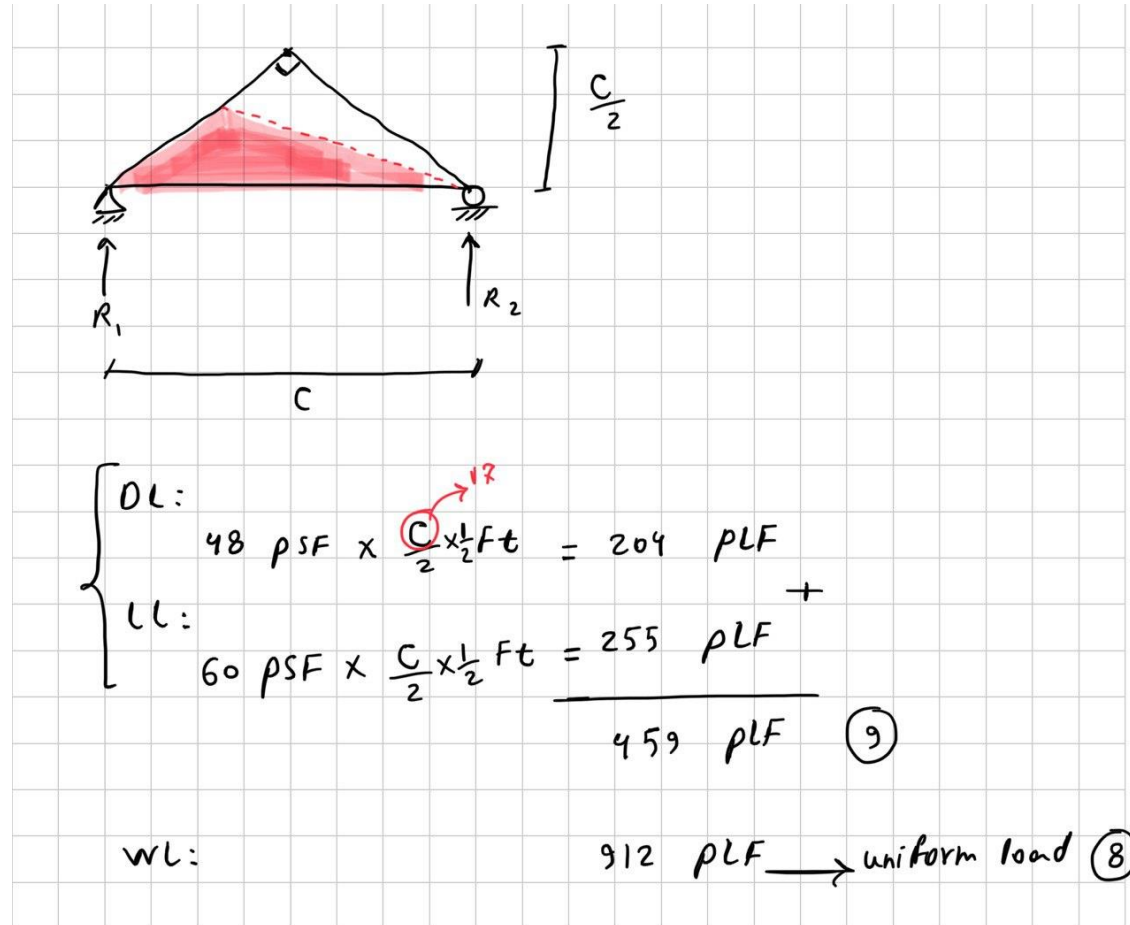 C/2
R₁
R₂
C
DL:
17
48 PSF × C/2 × 1/2 Ft = 204 PLF
+
LL:
60 PSF × C/2 × 1/2 Ft = 255 PLF
459 PLF 9
WL: 912 PLF → uniform load 8